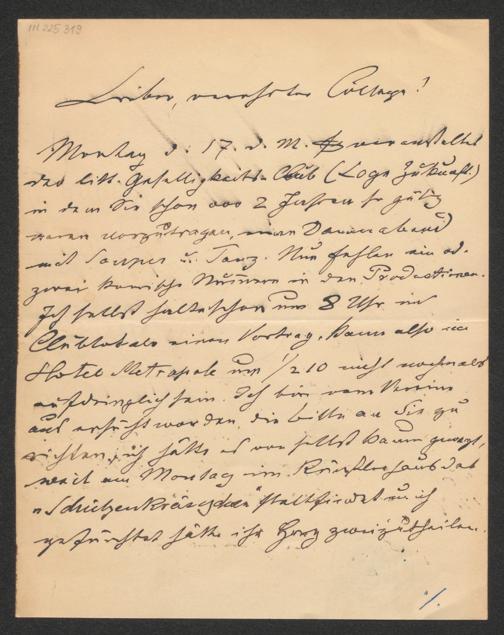 III 225 319
Lieber, verehrter College!
Montag d. 17. d. M. veranstaltet
das litt. Geselligkeits-Club (Loge Zukunft)
in dem Sie schon vor 2 Jahren so gütig
waren vorzutragen, einen Damenabend
mit Souper u. Tanz. Nun fehlen ein od.
zwei komische Nummern in den Productionen.
Ich selbst halte schon um 8 Uhr im
Clublokale einen Vortrag, kann also im
Hotel Metropole um 1/2 10 nicht nochmals
aufdringlich sein. Ich bin vom Verein
aus ersucht worden, die Bitte an Sie zu
richten, ich hätte es von selbst kaum gewagt,
weil am Montag im Künstlerhaus das
"Schützenkränzchen" stattfindet u. ich
gefürchtet hätte ihr Herz zweizutheilen.